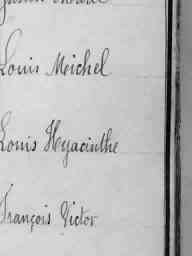 Louis Meichel
Louis Heyacinthe
François Victor